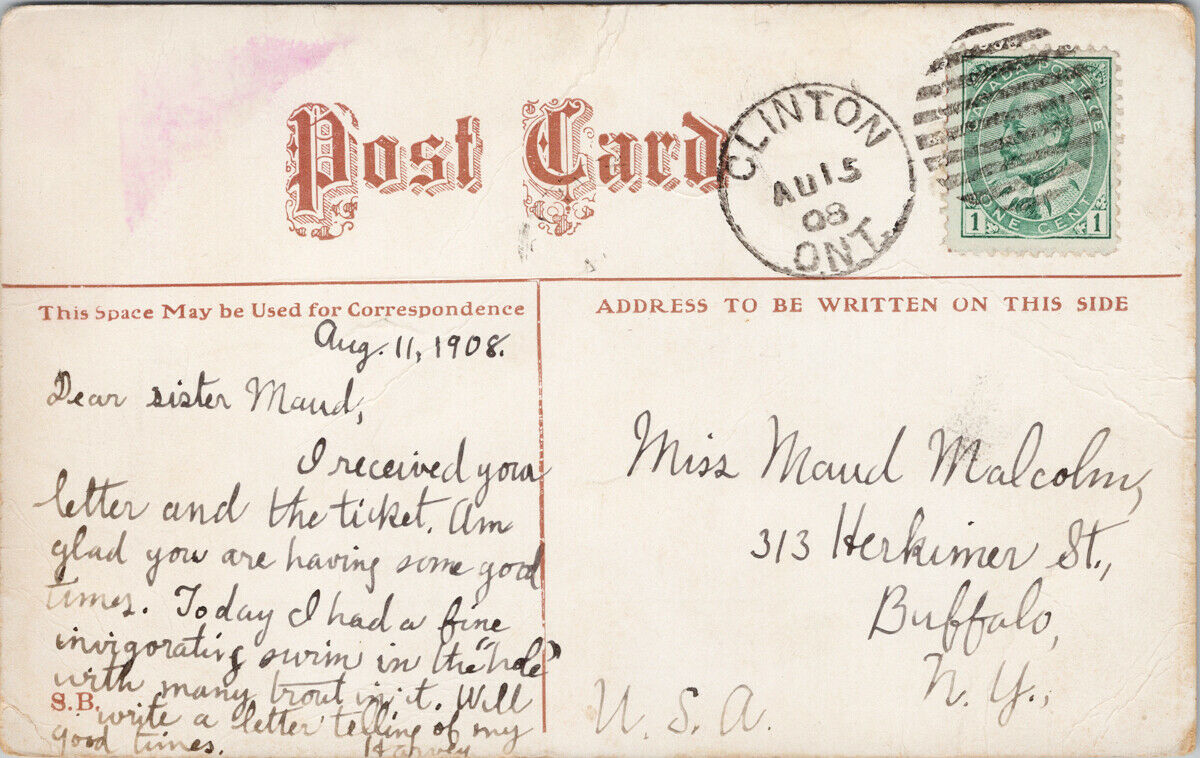 Post Card
CLINTON
AU 15
08
ONT.
CANADA POSTAGE
1 ONE CENT 1
This Space May be Used for Correspondence
ADDRESS TO BE WRITTEN ON THIS SIDE
Aug. 11, 1908.
Dear sister Maud,
I received your
letter and the ticket. Am
glad you are having some good
times. Today I had a fine
invigorating swim in the "hole"
with many trout in it. Will
write a letter telling of my
good times. Harvey
S.B.
Miss Maud Malcolm,
313 Herkimer St.,
Buffalo,
N. Y.,
U. S. A.